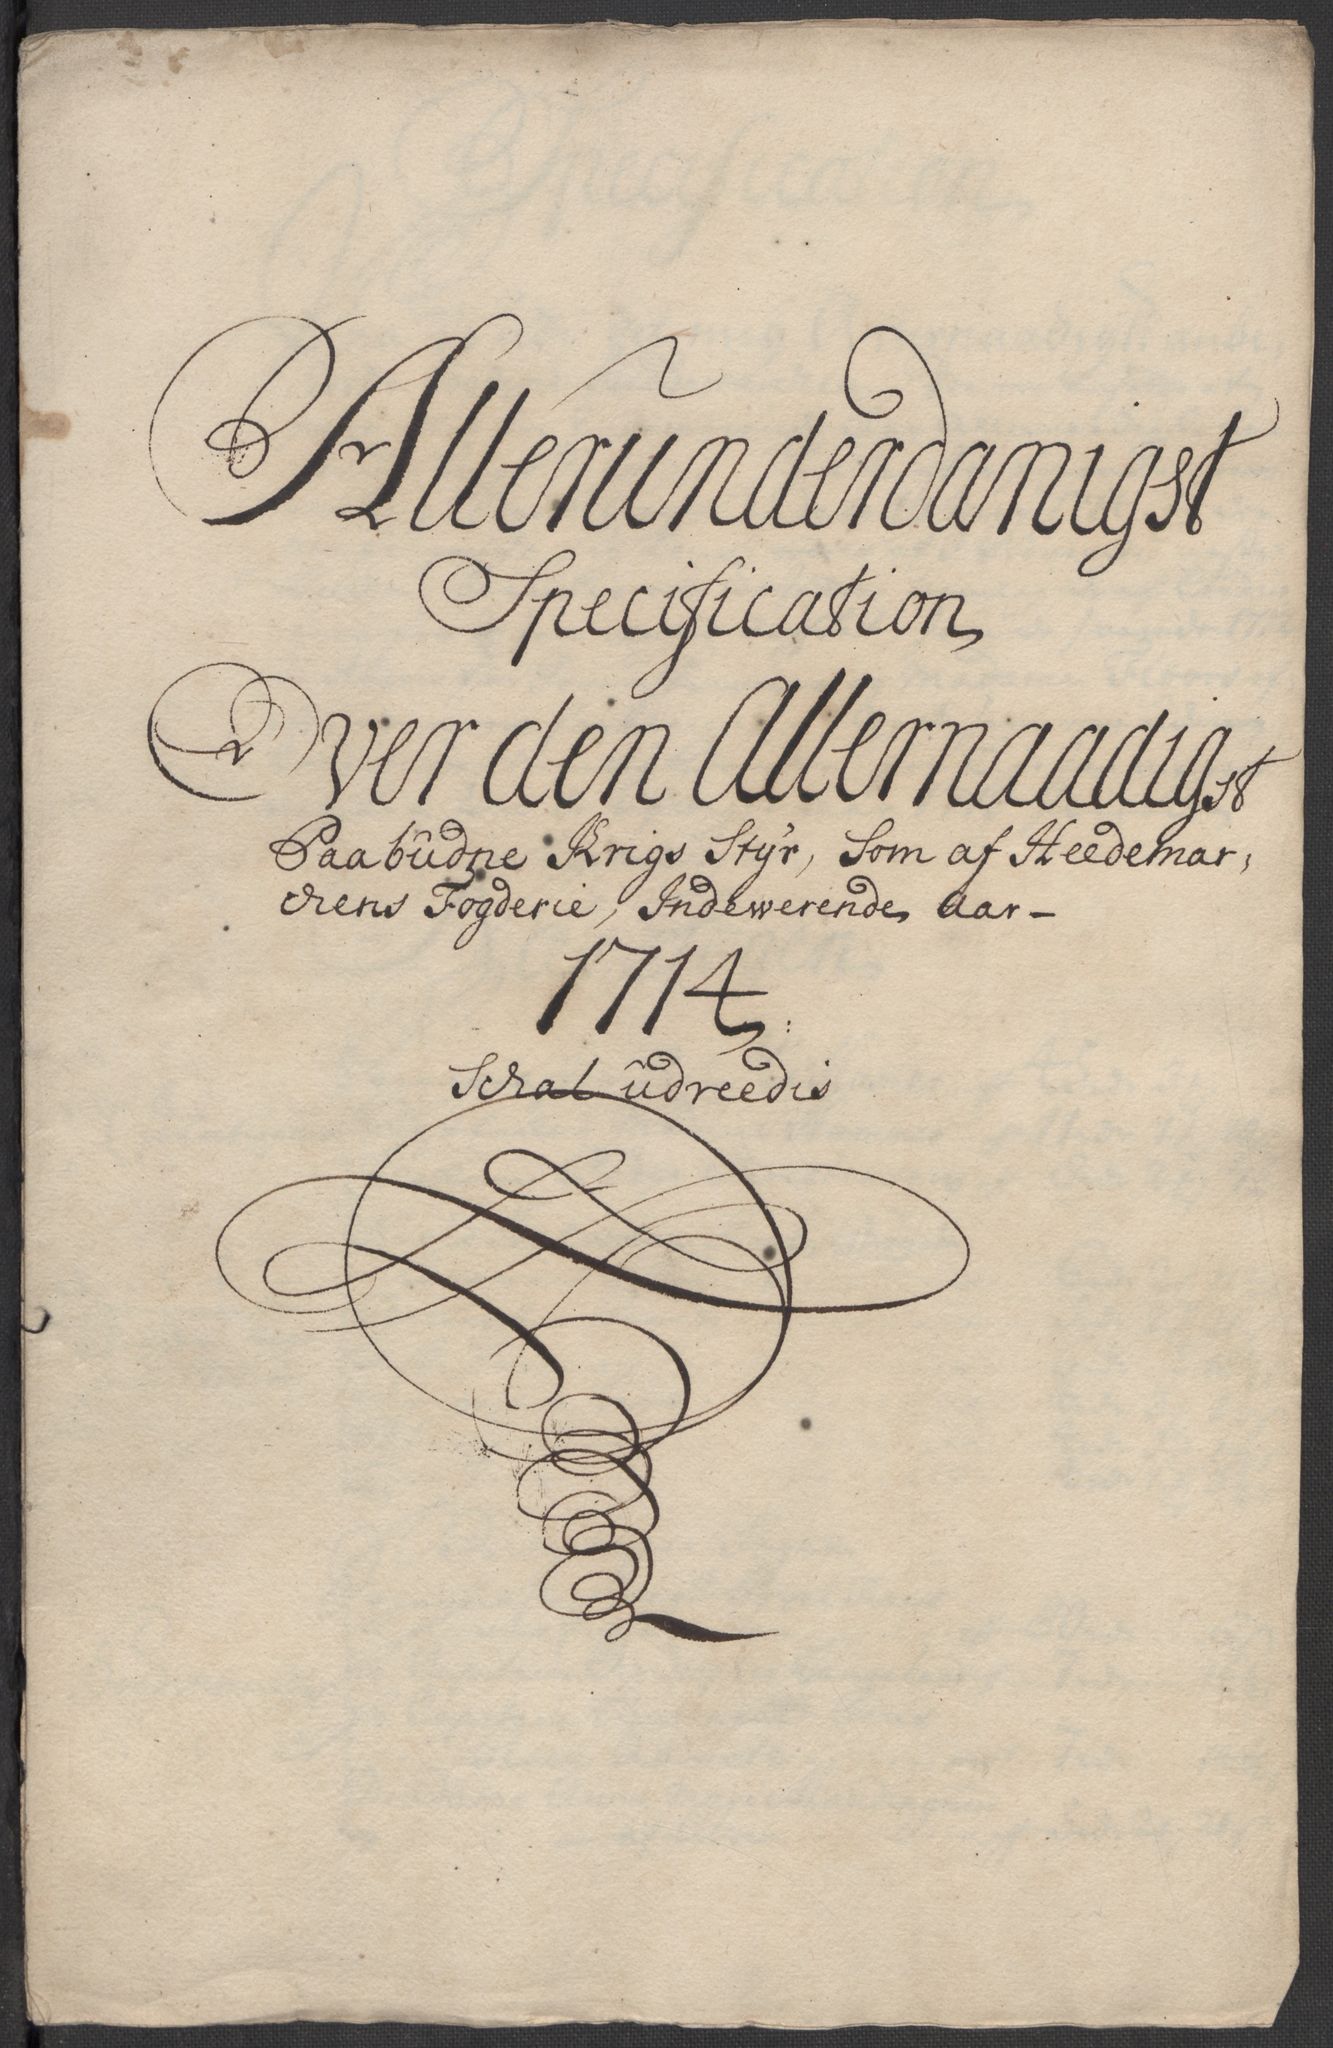 Allerunderdanigst
Specification
Over den Allernaadigst
Paabûdne Krigs Styr, Som af Heedemar,
chens Fogderie, Indewerende Aar-
1714
Schal ûdreedis